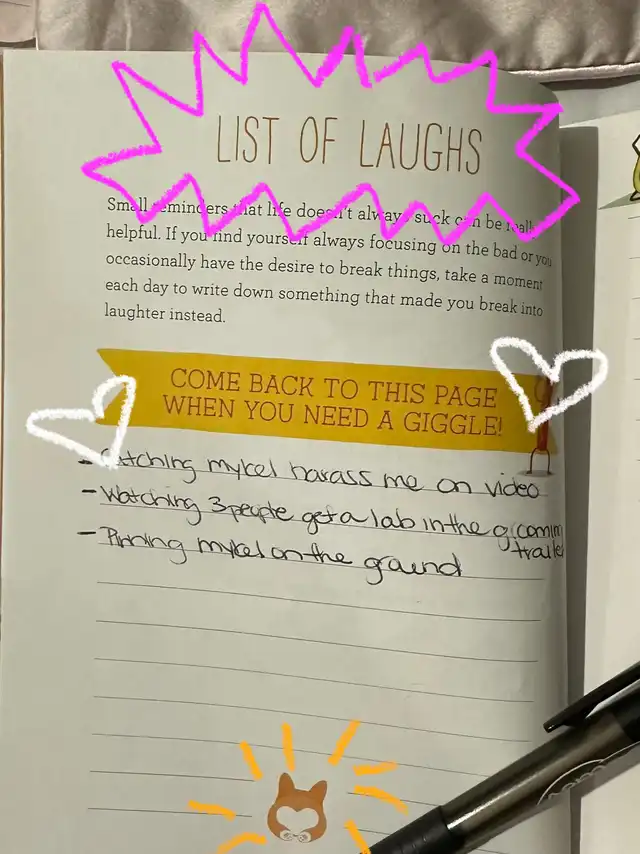 LIST OF LAUGHS
Small reminders that life doesn't always suck can be really
helpful. If you find yourself always focusing on the bad or you
occasionally have the desire to break things, take a moment
each day to write down something that made you break into
laughter instead.
COME BACK TO THIS PAGE
WHEN YOU NEED A GIGGLE!
- Catching mykel harass me on video
- Watching 3 people get a lab in the grooming
trailer
- Pinning mykel on the ground